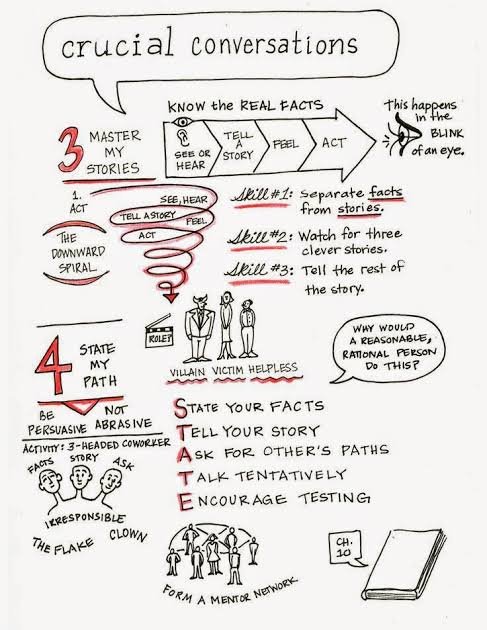 crucial conversations
KNOW the REAL FACTS
3 MASTER
MY
STORIES
SEE OR
HEAR
TELL
A
STORY
FEEL
ACT
this happens
in the
BLINK
of an eye.
1.
ACT
THE
DOWNWARD
SPIRAL
SEE, HEAR
TELL A STORY
FEEL
ACT
Skill #1: Separate facts
from stories.
Skill #2: Watch for three
clever stories.
Skill #3: Tell the rest of
the story.
ROLE?
VILLAIN VICTIM HELPLESS
WHY WOULD
A REASONABLE,
RATIONAL PERSON
DO THIS?
4 STATE
MY
PATH
BE NOT
PERSUASIVE ABRASIVE
ACTIVITY: 3-HEADED COWORKER
FACTS STORY ASK
IRRESPONSIBLE
THE FLAKE CLOWN
STATE YOUR FACTS
TELL YOUR STORY
ASK FOR OTHER'S PATHS
TALK TENTATIVELY
ENCOURAGE TESTING
FORM A MENTOR NETWORK
CH.
10